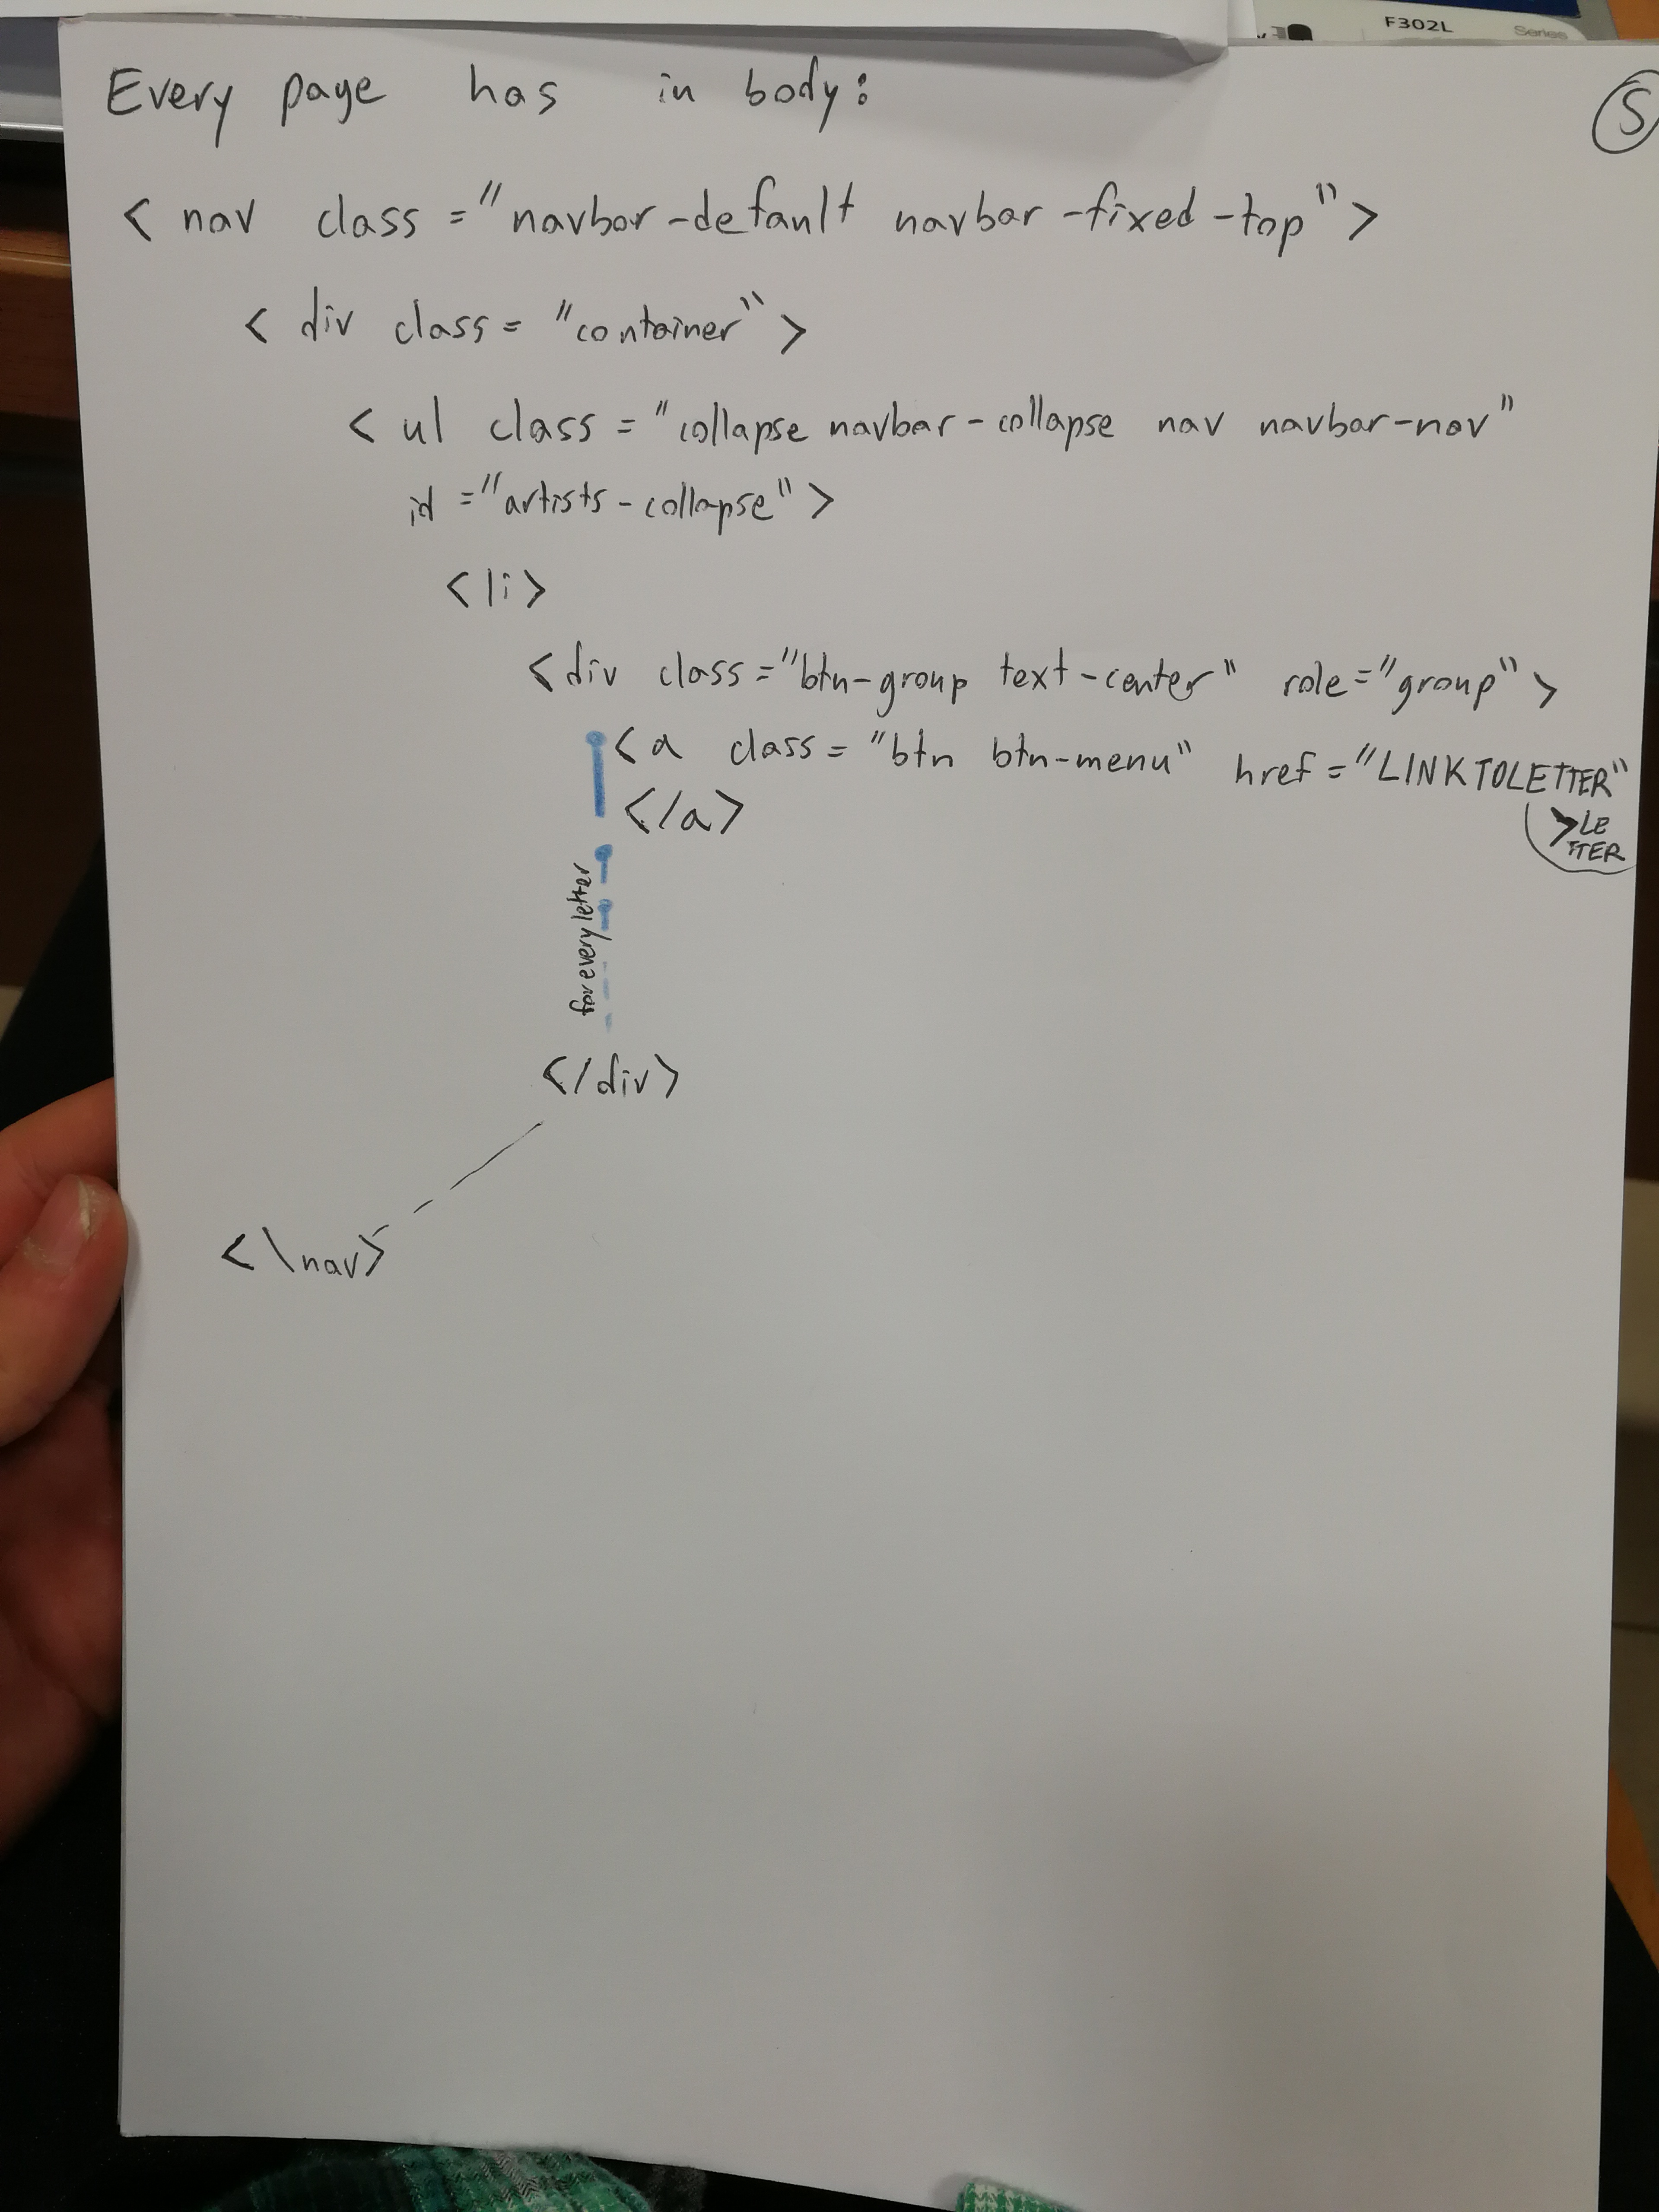 F302L
Series
Every page has in body:
S
< nav class="navbar-default navbar-fixed-top">
< div class= "container">
< ul class = "collapse navbar-collapse nav navbar-nav"
id ="artists-collapse">
<li>
<div class="btn-group text-center" role="group">
<a class= "btn btn-menu" href="LINKTOLETTER"
>LE
TTER
</a>
for every letter
</div>
<\nav>